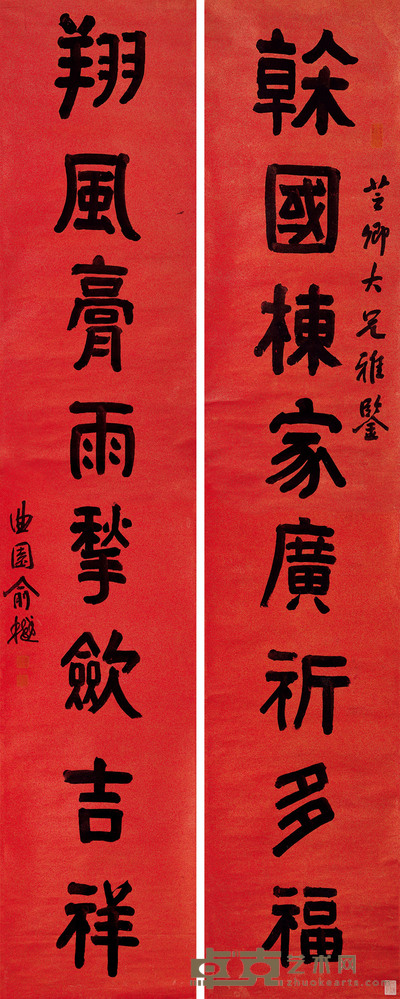 榦國棟家廣祈多福
芸卿大兄雅鑒
翔風膏雨揫斂吉祥
曲園俞樾
卓克艺术网